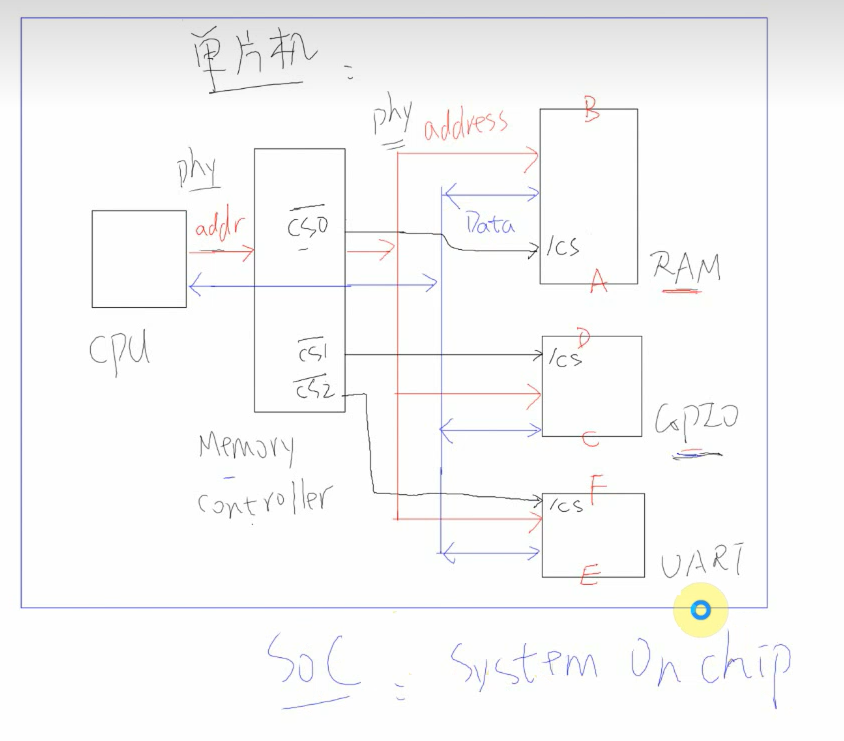 单片机:
phy
addr
CPU
CS0
CS1
CS2
Memory
controller
phy address
Data
B
/CS
A
RAM
D
/CS
C
GPIO
F
/CS
E
UART
SOC: System On chip